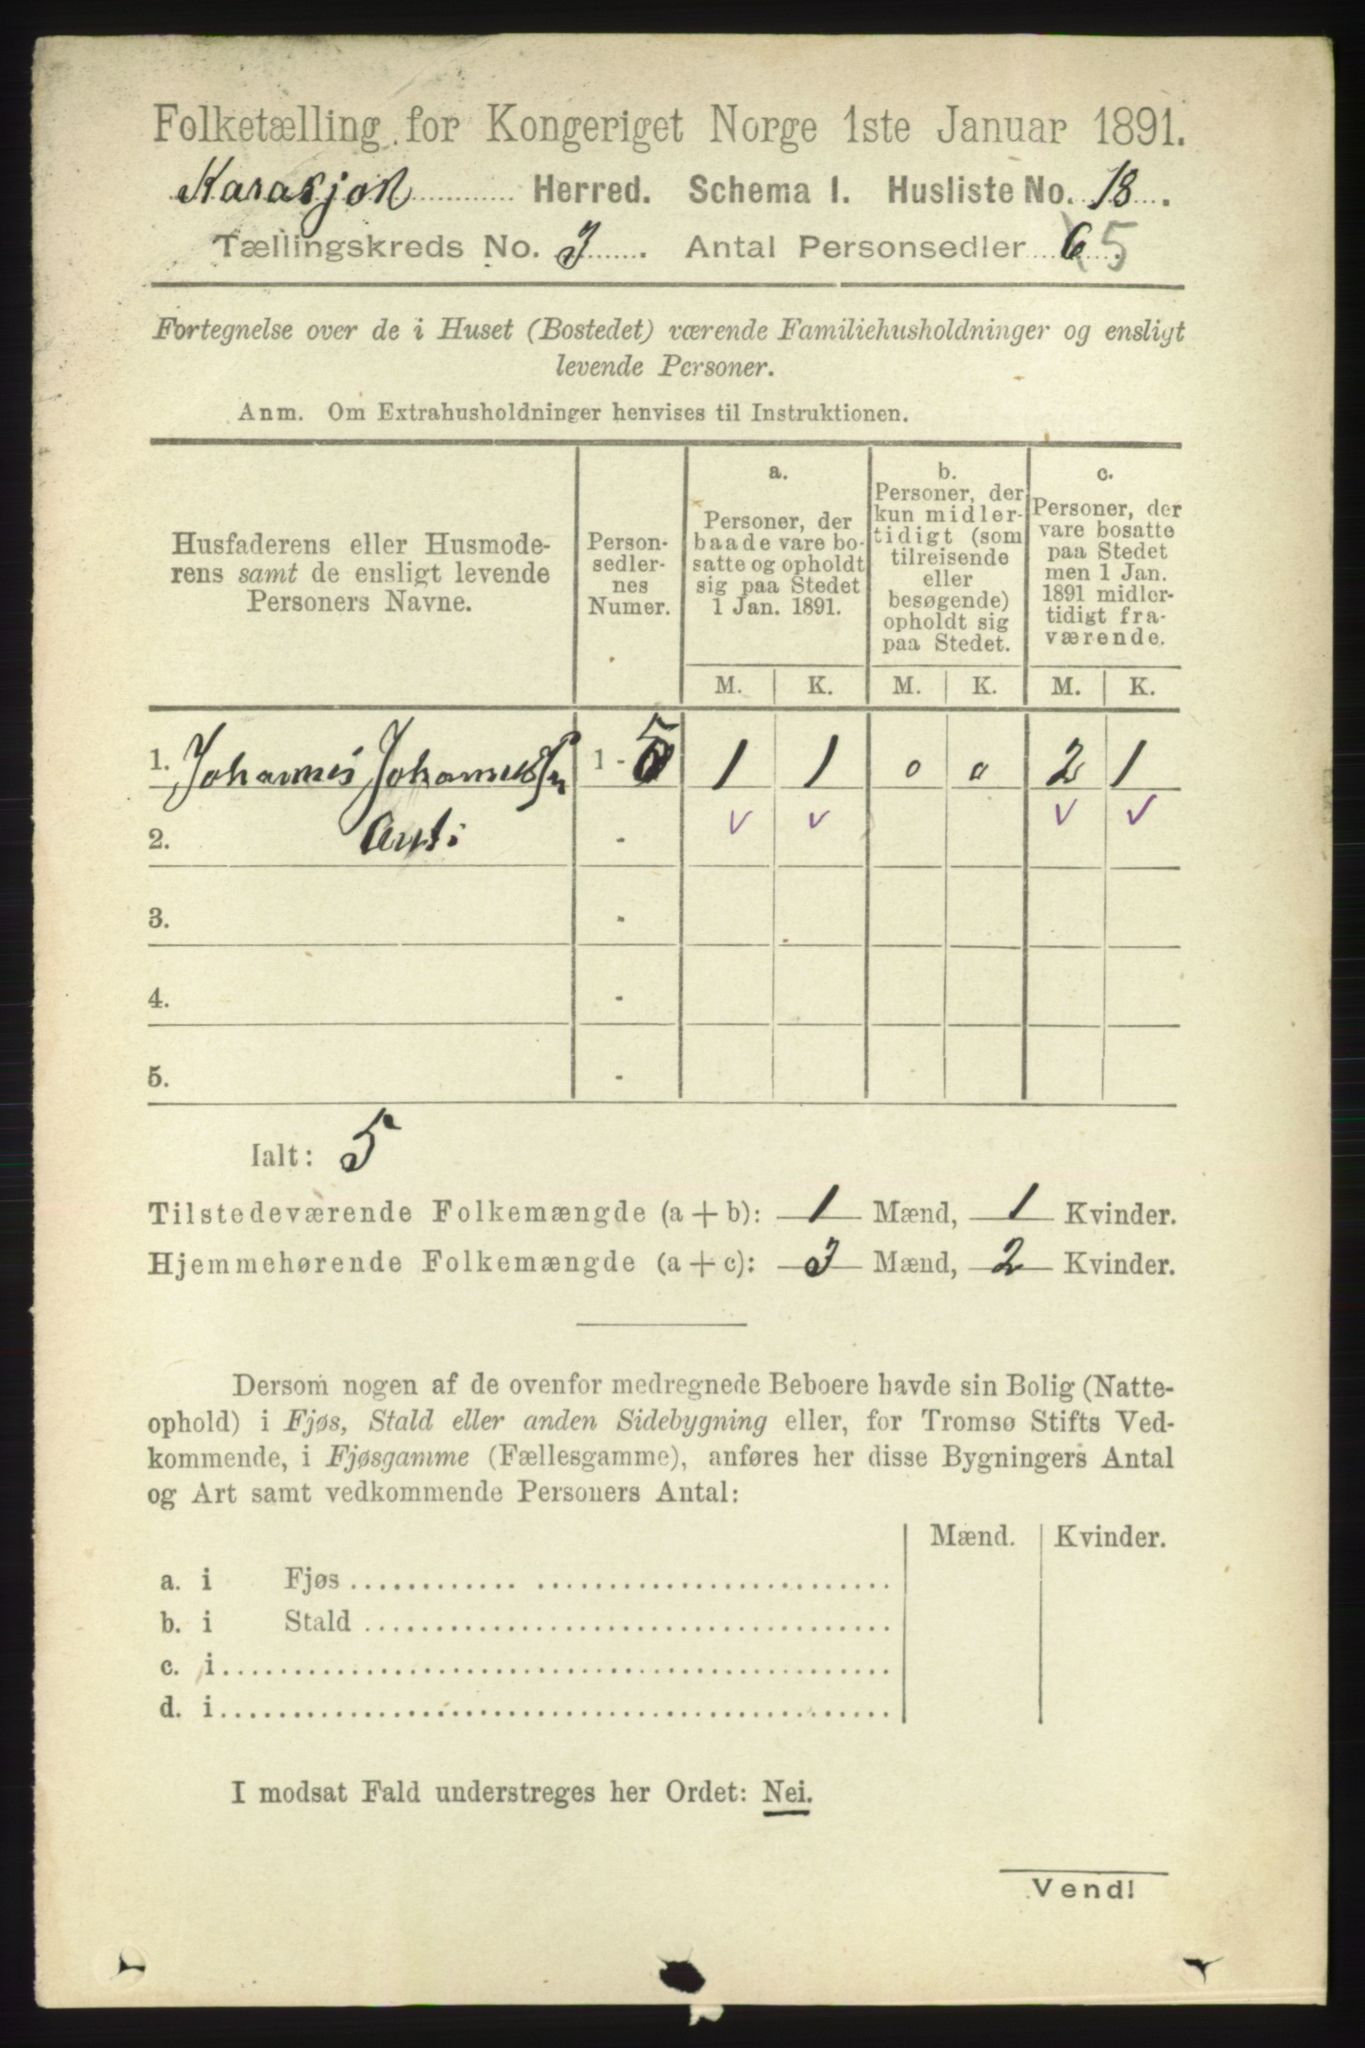 Folketælling for Kongeriget Norge 1ste Januar 1891.
Karasjok Herred. Schema 1. Husliste No. 18.
Tællingskreds No. 3. Antal Personsedler 6 5
Fortegnelse over de i Huset (Bostedet) værende Familiehusholdninger og ensligt
levende Personer.
Anm. Om Extrahusholdninger henvises til Instruktionen.
Husfaderens eller Husmode-
rens samt de ensligt levende
Personers Navne.
Person-
sedler-
nes
Numer.
a.
Personer, der
baade vare bo-
satte og opholdt
sig paa Stedet
1 Jan. 1891.
b.
Personer, der
kun midler-
tidigt (som
tilreisende
eller
besøgende)
opholdt sig
paa Stedet.
c.
Personer, der
vare bosatte
paa Stedet
men 1 Jan.
1891 midler-
tidigt fra-
værende.
M. K. M. K. M. K.
1. Johannes Johannessen 1 - 5 1 1 0 0 2 1
2. Anti - v v v v
3. -
4. -
5. -
Ialt: 5
Tilstedeværende Folkemængde (a + b): 1 Mænd, 1 Kvinder.
Hjemmehørende Folkemængde (a + c): 3 Mænd, 2 Kvinder.
Dersom nogen af de ovenfor medregnede Beboere havde sin Bolig (Natte-
ophold) i Fjøs, Stald eller anden Sidebygning eller, for Tromsø Stifts Ved-
kommende, i Fjøsgamme (Fællesgamme), anføres her disse Bygningers Antal
og Art samt vedkommende Personers Antal:
Mænd. Kvinder.
a. i Fjøs
b. i Stald
c. i
d. i
I modsat Fald understreges her Ordet: Nei.
Vend!